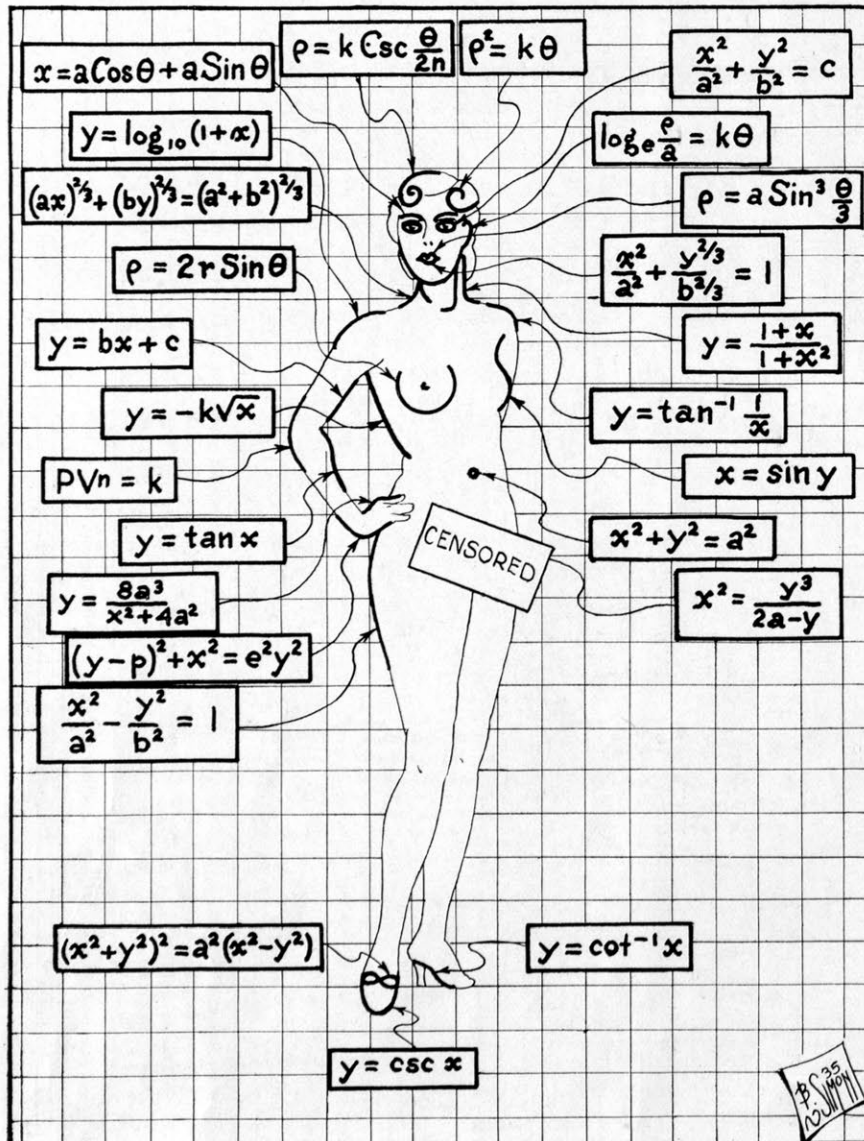 ρ = k Csc θ/2n
ρ² = kθ
x²/a² + y²/b² = c
x = a Cos θ + a Sin θ
y = log₁₀ (1+x)
logₑ ρ/a = kθ
(ax)^⅔ + (by)^⅔ = (a² + b²)^⅔
ρ = a Sin³ θ/3
ρ = 2r Sin θ
x²/a² + y^2/3/b^2/3 = 1
y = bx + c
y = 1+x/1+x²
y = -k√x
y = tan⁻¹ 1/x
PVn = k
x = sin y
y = tan x
CENSORED
x² + y² = a²
y = 8a³/x² + 4a²
x² = y³/2a-y
(y-p)² + x² = e²y²
x²/a² - y²/b² = 1
(x² + y²)² = a²(x² - y²)
y = cot⁻¹ x
y = csc x
35